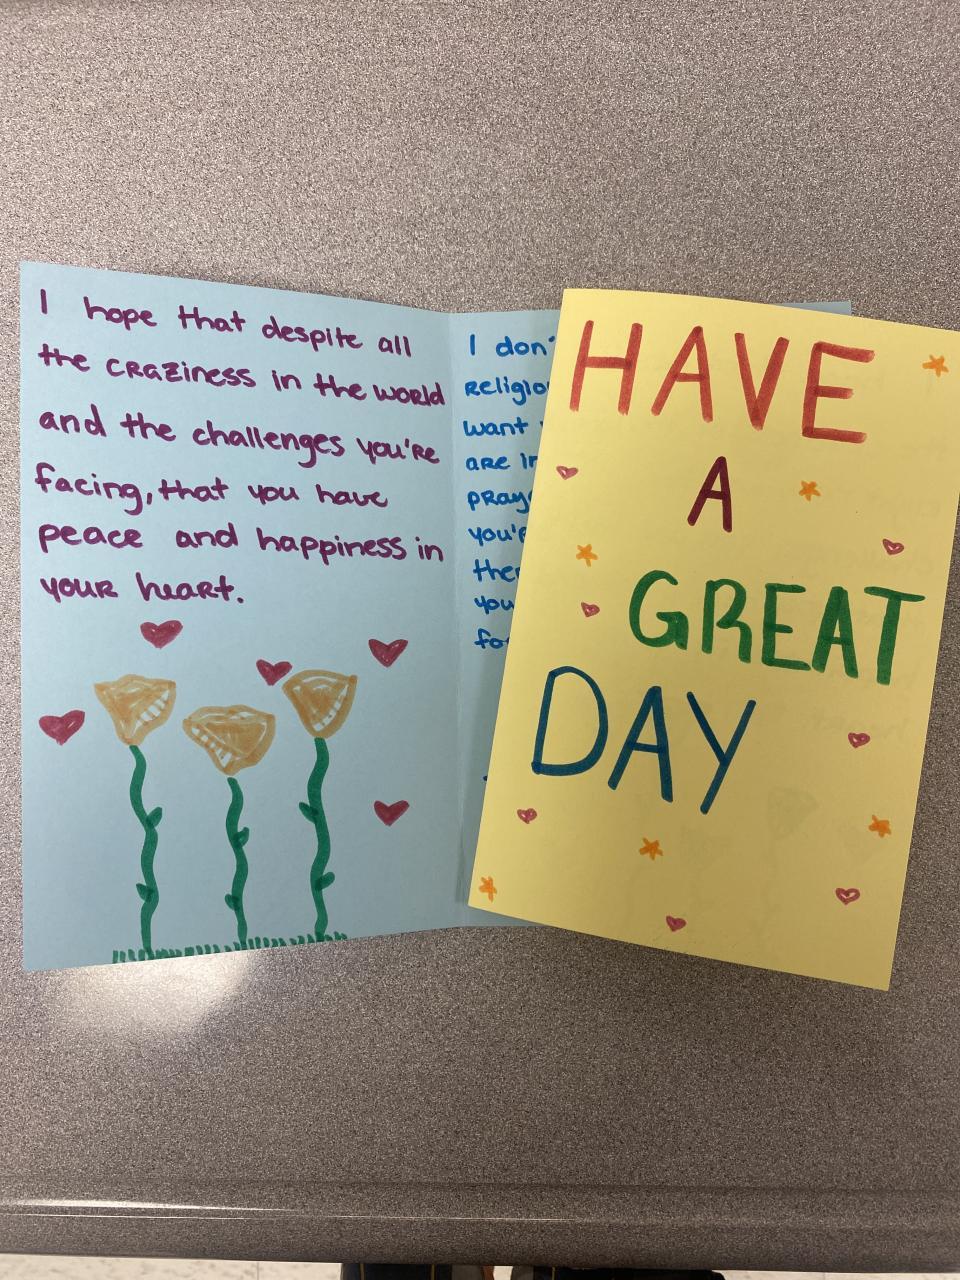 I hope that despite all
the craziness in the world
and the challenges you're
facing, that you have
peace and happiness in
your heart.
I don'
want
are
HAVE
A
GREAT
DAY